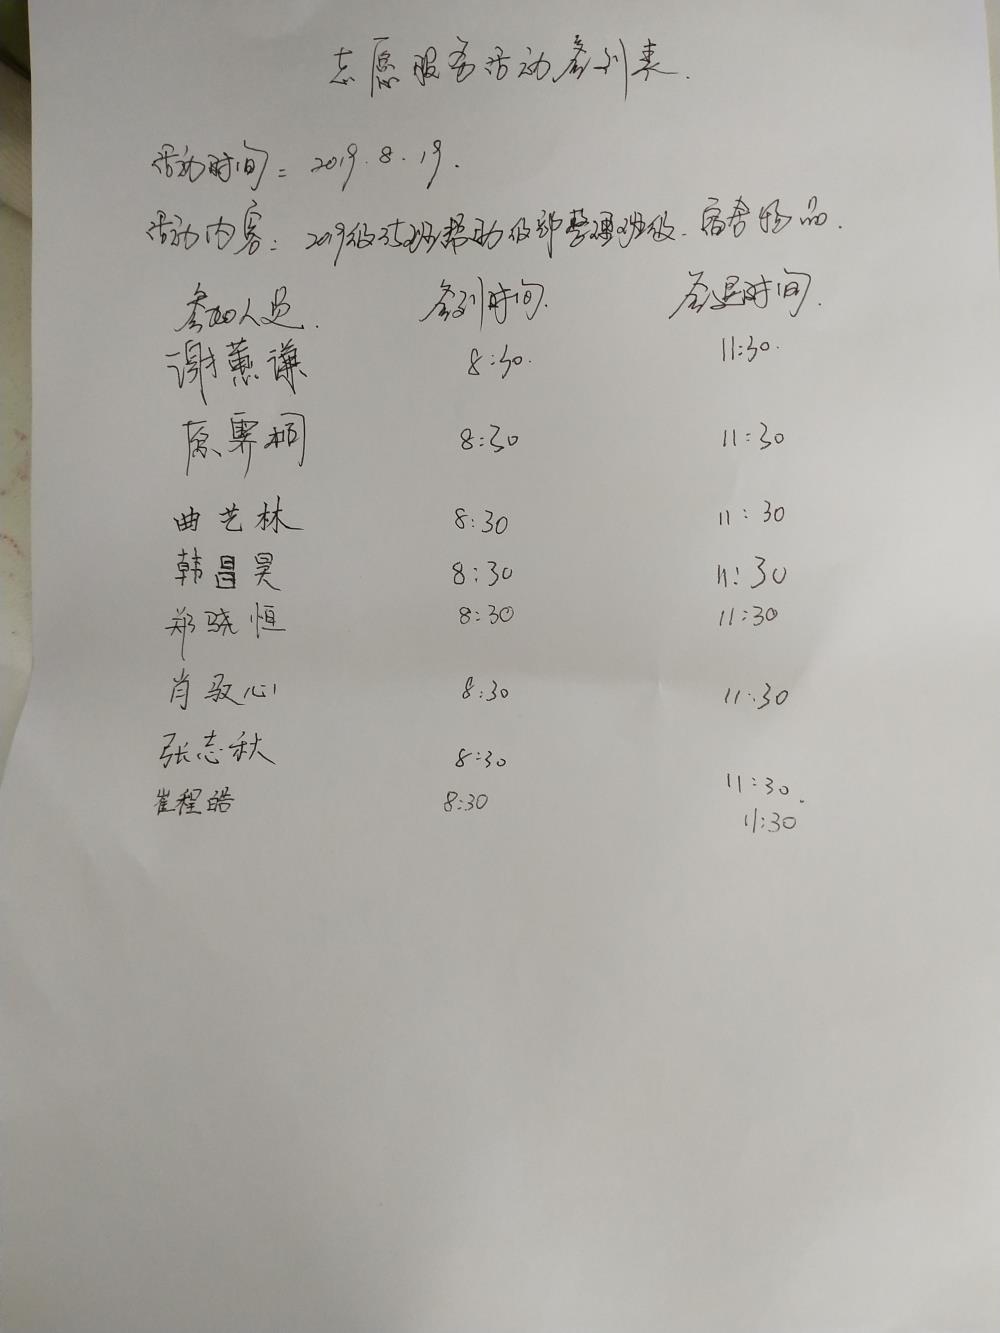 志愿服务活动签到表.
活动时间: 2019.8.19.
活动内容: 2019级35班帮助级部整理班级.宿舍物品.
参加人员. 签到时间. 签退时间.
谢蕙谦 8:30. 11:30.
原霁桐 8:30 11:30
曲艺林 8:30 11:30
韩昌昊 8:30 11:30
郑骁恒 8:30 11:30
肖驭心 8:30 11:30
张志秋 8:30 11:30.
崔程皓 8:30 11:30